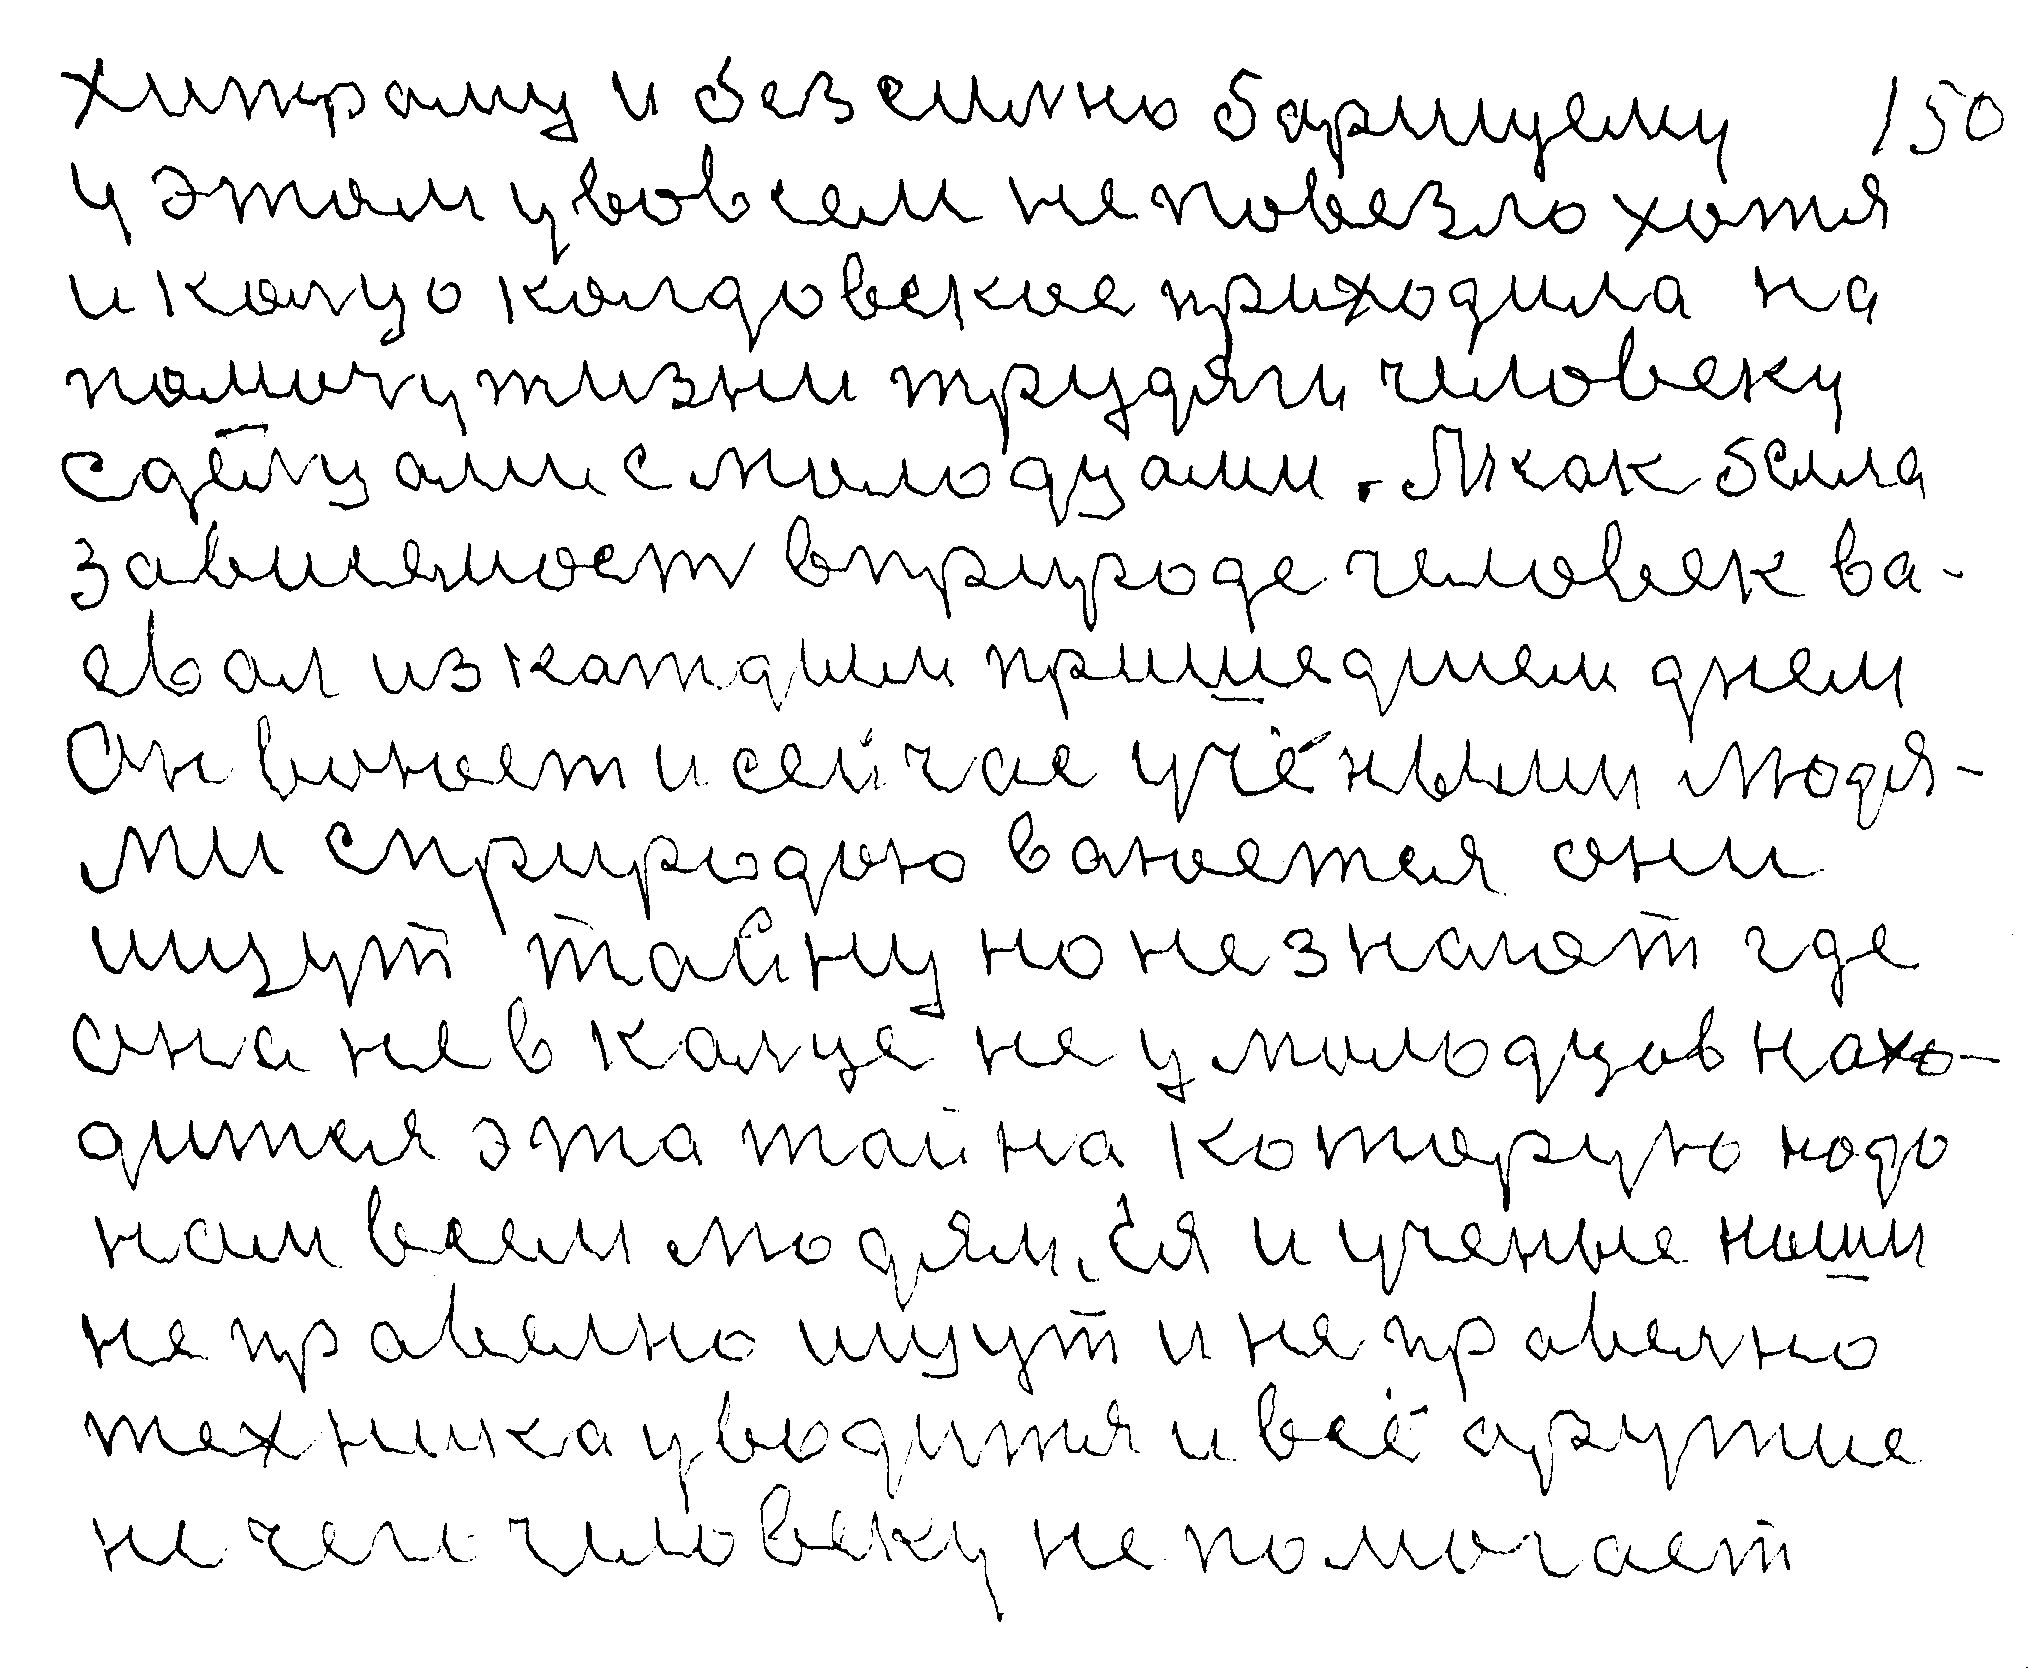 хитраму и безсилно барищему 150
у этом у вовсем не повезло хотя
и колцо колдовское приходила на
помич у жизни трудяги человеку
с делцами с молодцами. Т как была
зависемост в природе человек ва-
евал из каждым пришедшем днем
Он воюет и сейчас учёными людя-
ми с природою ваюется они
ищут тайну но не знают где
она не в колце не у молодцов нахо-
дится эта тайна которую надо
нам всем людям. Ся и ученые наши
не правелно ищут и не правелно
техника уводится и всё аружие
не чем человеку не помогает